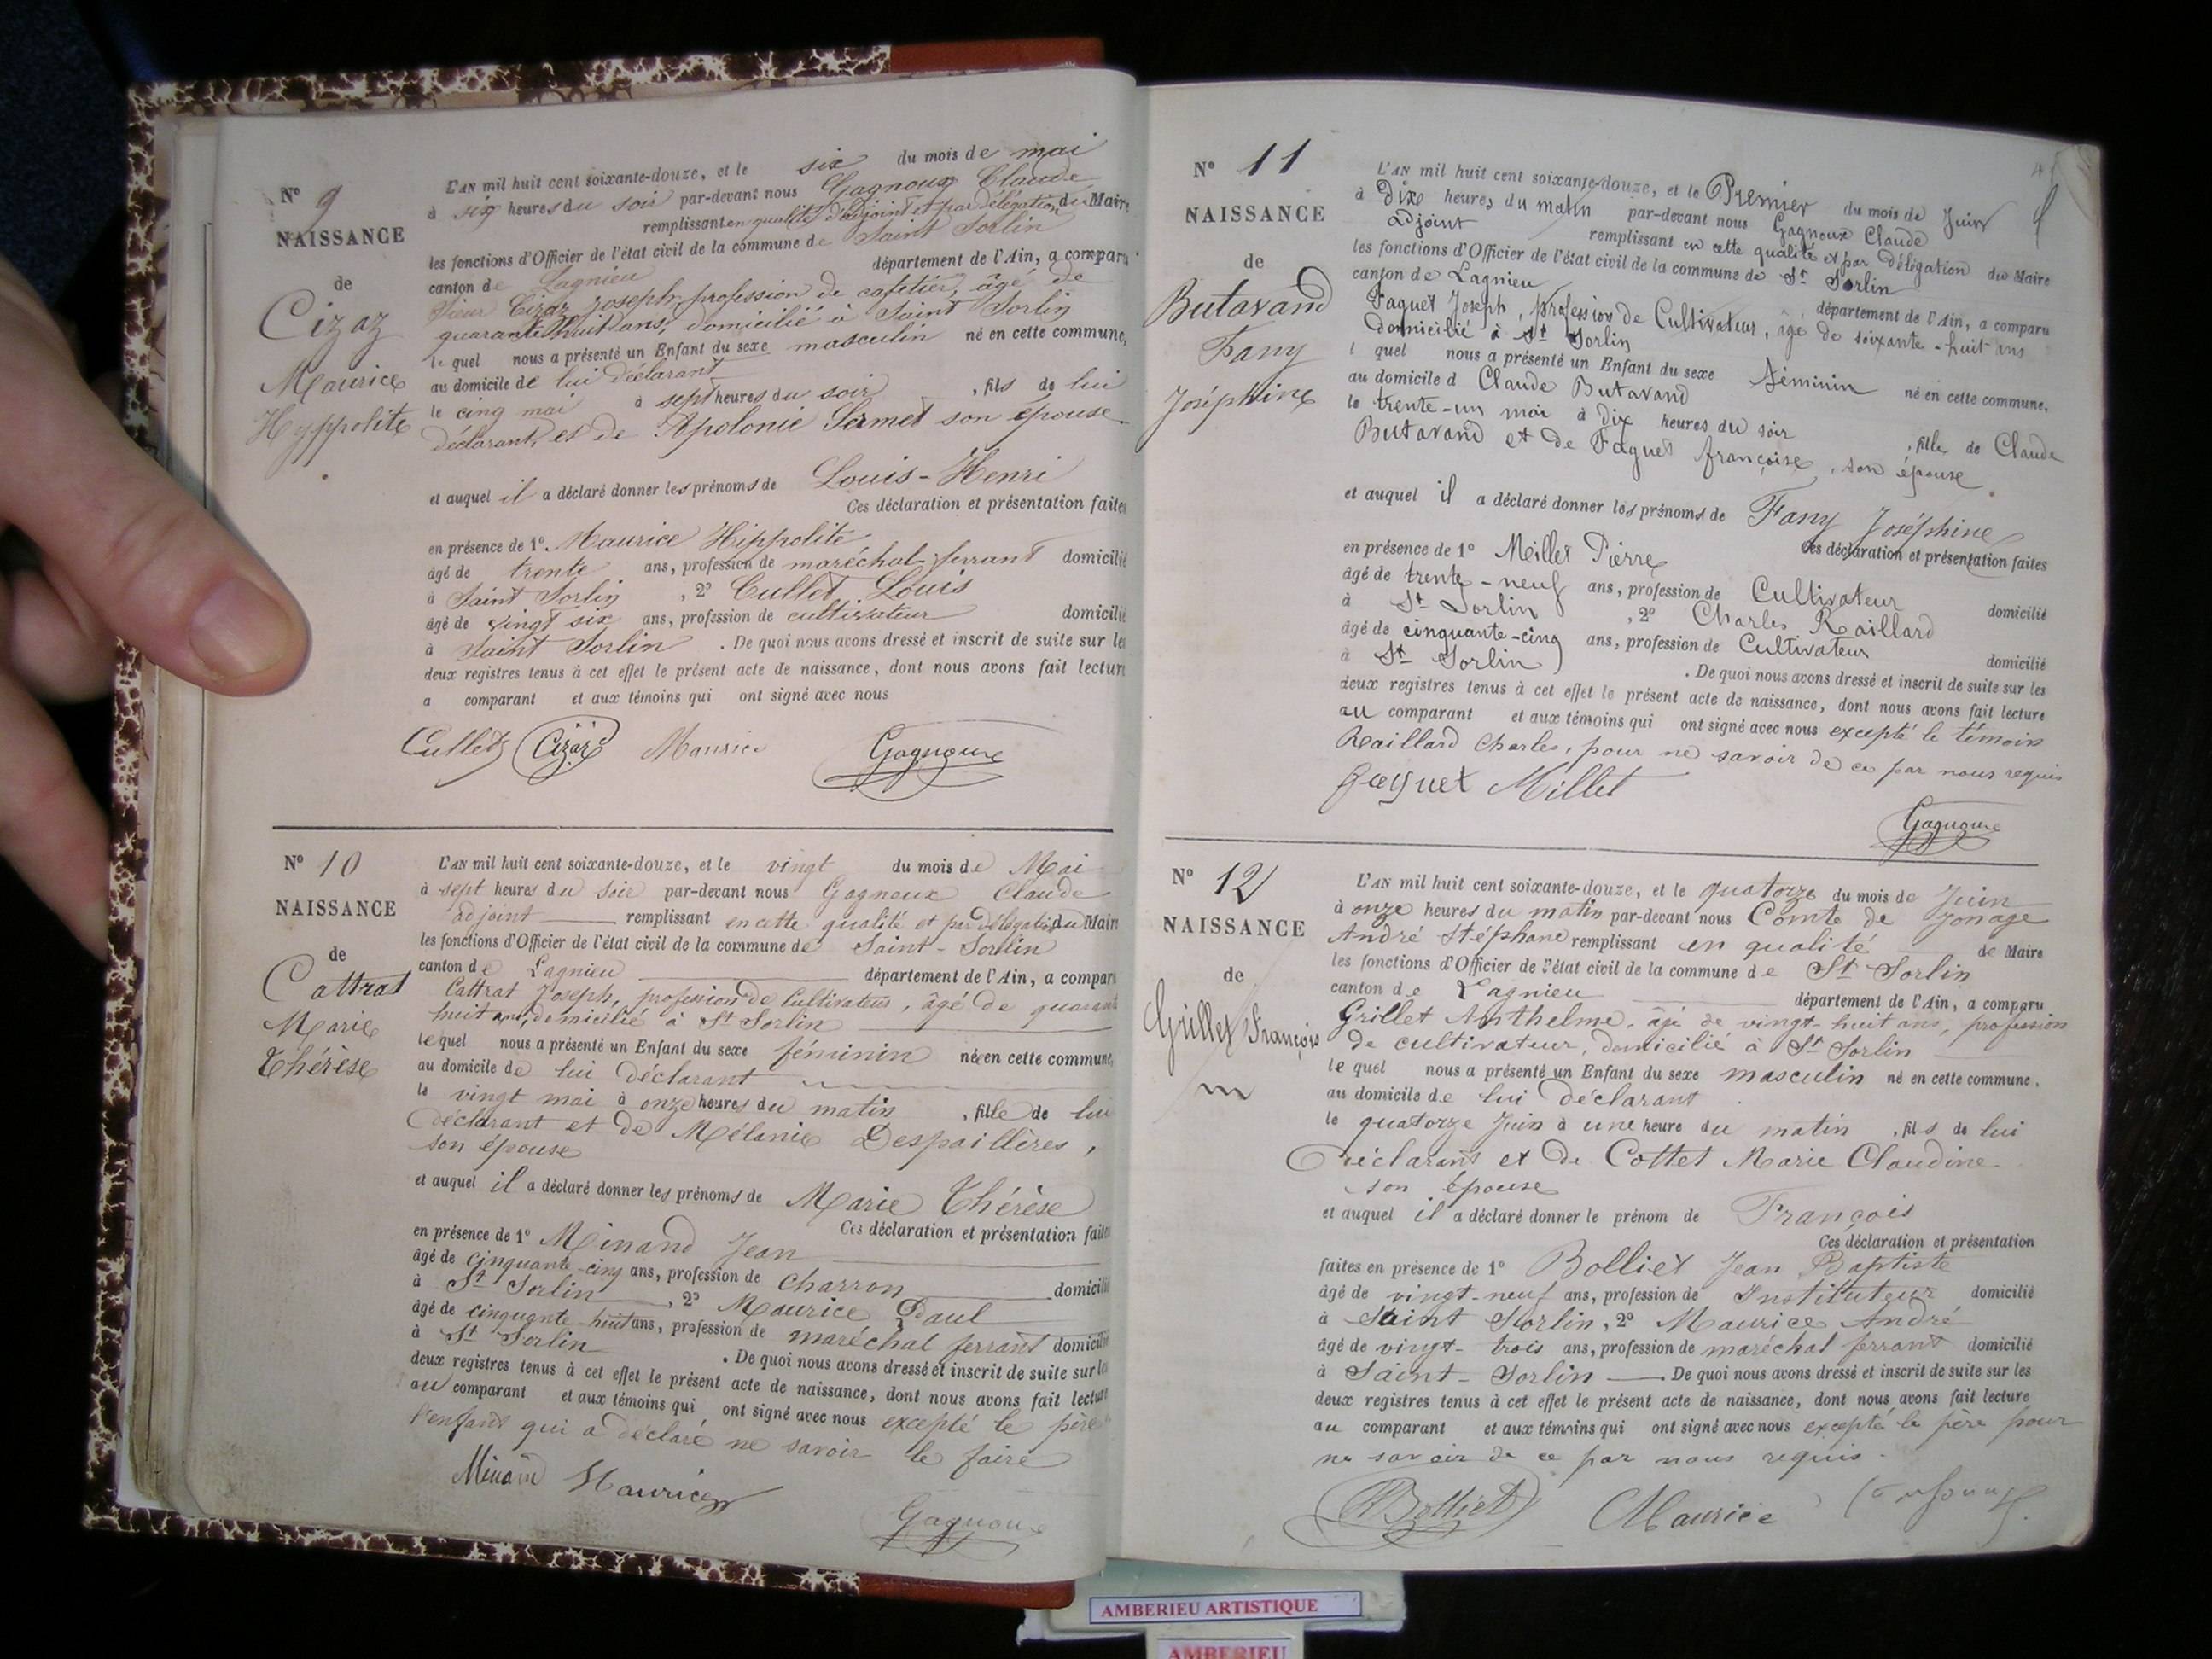 N° 9
NAISSANCE
de
Cizaz
Maurice
Hyppolite
L'AN mil huit cent soixante-douze, et le six du mois de mai
à six heures du soir par-devant nous Gagnoux Claude
remplissant en qualité d'adjoint et par délégation du Maire
les fonctions d'Officier de l'état civil de la commune de Saint Sorlin
canton de Lagnieu département de l'Ain, a comparu
Sieur Cizaz Joseph, profession de cafetier, âgé de
quarante huit ans, domicilié à Saint Sorlin
lequel nous a présenté un Enfant du sexe masculin né en cette commune,
au domicile de lui déclarant
le cinq mai à sept heures du soir, fils de lui
déclarant, et de Apolonie Sermet son épouse
et auquel il a déclaré donner les prénoms de Louis-Henri
Ces déclaration et présentation faites
en présence de 1°. Maurice Hippolite
âgé de trente ans, profession de maréchal-ferrant domicilié
à Saint Sorlin, 2° Cullet Louis
âgé de vingt six ans, profession de cultivateur domicilié
à Saint Sorlin. De quoi nous avons dressé et inscrit de suite sur les
deux registres tenus à cet effet le présent acte de naissance, dont nous avons fait lecture
a comparant et aux témoins qui ont signé avec nous
Cullet Cizaz Maurice Gagnoux
N° 10
NAISSANCE
de
Cattrat
Marie
Thérèse
L'AN mil huit cent soixante-douze, et le vingt du mois de Mai
à sept heures du soir par-devant nous Gagnoux Claude
adjoint remplissant en cette qualité et par délégation du Maire
les fonctions d'Officier de l'état civil de la commune de Saint-Sorlin
canton de Lagnieu département de l'Ain, a comparu
Cattrat Joseph, profession de Cultivateur, âgé de quarante
huit ans, domicilié à St Sorlin
lequel nous a présenté un Enfant du sexe féminin née en cette commune,
au domicile de lui déclarant
le vingt mai à onze heures du matin, fille de lui
déclarant et de Mélanie Despaillères,
son épouse
et auquel il a déclaré donner les prénoms de Marie Thérèse
Ces déclaration et présentation faites
en présence de 1° Minand Jean
âgé de cinquante-cinq ans, profession de charron domicilié
à St Sorlin, 2° Maurice Paul
âgé de cinquante-huit ans, profession de maréchal ferrant domicilié
à St Sorlin. De quoi nous avons dressé et inscrit de suite sur les
deux registres tenus à cet effet le présent acte de naissance, dont nous avons fait lecture
au comparant et aux témoins qui ont signé avec nous excepté le père
l'enfant qui a déclaré ne savoir le faire
Minand Maurice
Gagnoux
N° 11
NAISSANCE
de
Butavand
Fany
Joséphine
L'AN mil huit cent soixante-douze, et le Premier du mois de Juin
à dix heures du matin par-devant nous Gagnoux Claude
adjoint remplissant en cette qualité et par délégation du Maire
les fonctions d'Officier de l'état civil de la commune de St Sorlin
canton de Lagnieu département de l'Ain, a comparu
Faquet Joseph, profession de Cultivateur, âgé de soixante-huit ans
domicilié à St Sorlin
l quel nous a présenté un Enfant du sexe féminin né en cette commune,
au domicile d Claude Butavand
le trente-un mai à dix heures du soir, fille de Claude
Butavand et de Faquet françoise, son épouse
et auquel il a déclaré donner les prénoms de Fany Joséphine
Ces déclaration et présentation faites
en présence de 1° Millet Pierre
âgé de trente-neuf ans, profession de Cultivateur domicilié
à St Sorlin, 2° Charles Raillard
âgé de cinquante-cinq ans, profession de Cultivateur domicilié
à St Sorlin. De quoi nous avons dressé et inscrit de suite sur les
deux registres tenus à cet effet le présent acte de naissance, dont nous avons fait lecture
au comparant et aux témoins qui ont signé avec nous excepté le témoin
Raillard Charles, pour ne savoir de ce par nous requis
Faquet Millet
Gagnoux
N° 12
NAISSANCE
de
Grillet François
L'AN mil huit cent soixante-douze, et le quatorze du mois de Juin
à onze heures du matin par-devant nous Comte de Jonage
André Stéphane remplissant en qualité de Maire
les fonctions d'Officier de l'état civil de la commune de St Sorlin
canton de Lagnieu département de l'Ain, a comparu
Grillet Anthelme, âgé de vingt-huit ans, profession
de cultivateur, domicilié à St Sorlin
lequel nous a présenté un Enfant du sexe masculin né en cette commune,
au domicile de lui déclarant
le quatorze Juin à une heure du matin, fils de lui
déclarant et de Cottet Marie Claudine
son épouse
et auquel il a déclaré donner le prénom de François
Ces déclaration et présentation
faites en présence de 1° Bolliet Jean Baptiste
âgé de vingt-neuf ans, profession de Instituteur domicilié
à Saint Sorlin, 2° Maurice André
âgé de vingt-trois ans, profession de maréchal ferrant domicilié
à Saint-Sorlin De quoi nous avons dressé et inscrit de suite sur les
deux registres tenus à cet effet le présent acte de naissance, dont nous avons fait lecture
au comparant et aux témoins qui ont signé avec nous excepté le père pour
ne savoir de ce par nous requis.
Bolliet Maurice
AMBERIEU ARTISTIQUE
AMBERIEU